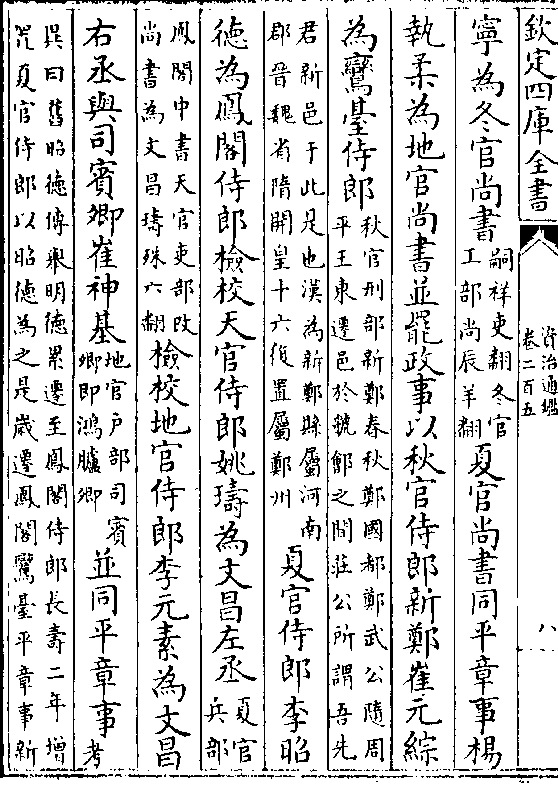 欽定四庫全書
資治通鑑
卷二百五
八
寧為冬官尚書
嗣祥吏翻冬官
工部尚辰羊翻
夏官尚書同平章事楊
執柔為地官尚書並罷政事以秋官侍郎新鄭崔元綜
為鸞臺侍郎
秋官刑部新鄭春秋鄭國都鄭武公隨周
平王東遷邑於虢鄶之間莊公所謂吾先
君新邑于此是也漢為新鄭縣屬河南
郡晉魏省隋開皇十六復置屬鄭州
夏官侍郎李昭
徳為鳳閣侍郎檢校天官侍郎姚璹為文昌左丞
夏官
兵部
鳳閣中書天官吏部改
尚書為文昌璹殊六翻
檢校地官侍郎李元素為文昌
右丞與司賓卿崔神基
地官户部司賓
卿即鴻臚卿
並同平章事
考
異曰舊昭徳傳舉明徳累遷至鳳閣侍郎長壽二年增
置夏官侍郎以昭徳為之是歲遷鳳閣鸞臺平章事新